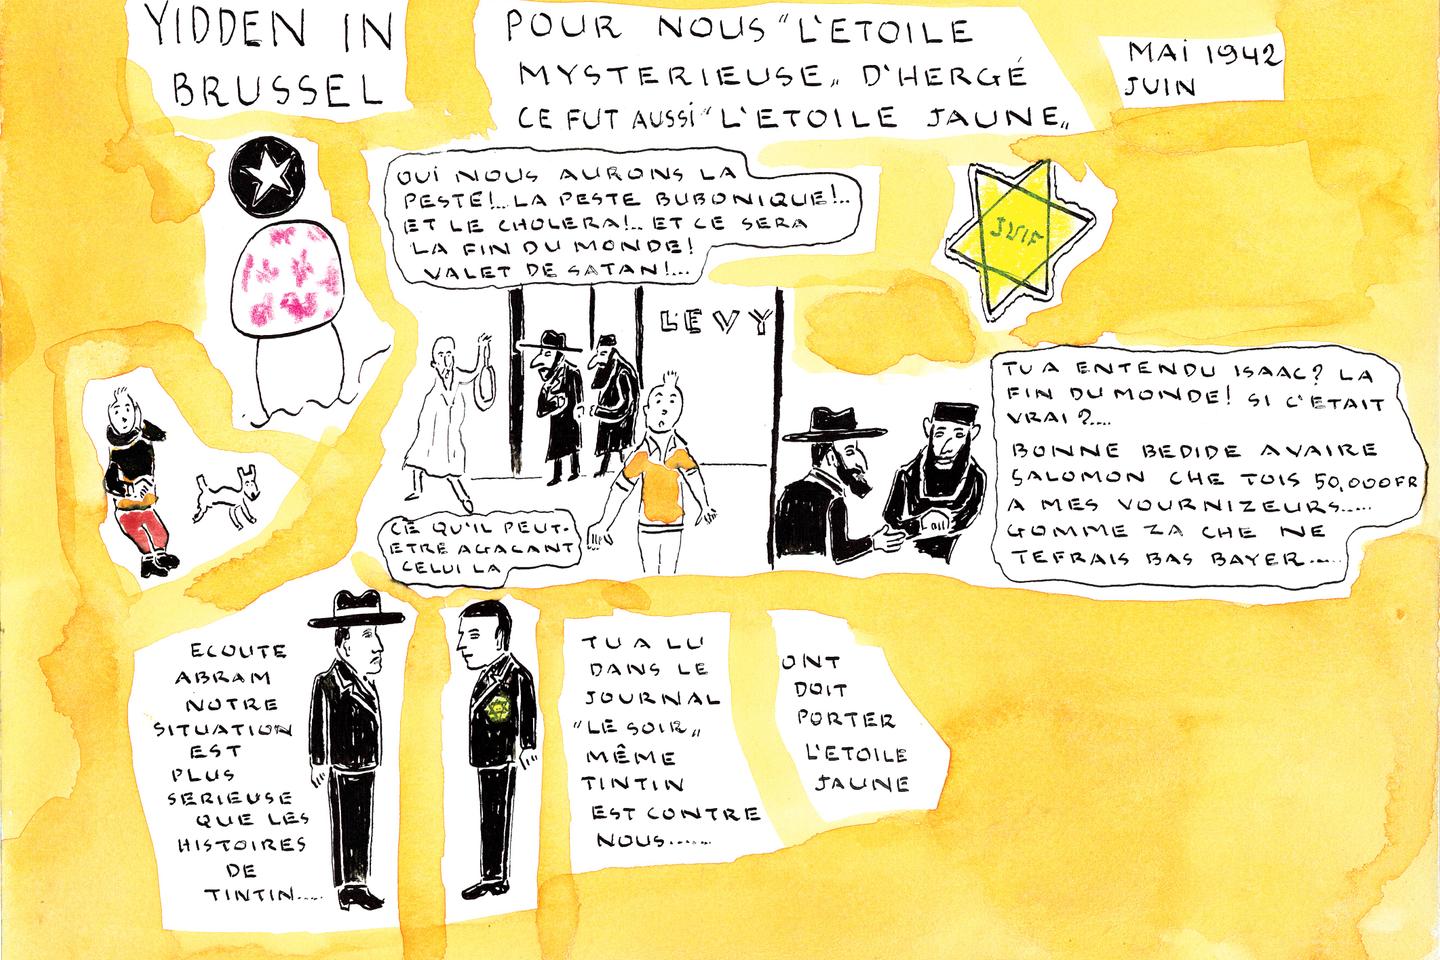 YIDDEN IN
BRUSSEL
POUR NOUS "L'ETOILE
MYSTERIEUSE" D'HERGÉ
CE FUT AUSSI "L'ETOILE JAUNE"
MAI 1942
JUIN
OUI NOUS AURONS LA
PESTE!.. LA PESTE BUBONIQUE!..
ET LE CHOLERA!.. ET CE SERA
LA FIN DU MONDE!
VALET DE SATAN!...
JUIF
LEVY
CE QU'IL PEUT-
ETRE AGAÇANT
CELUI LA
TU A ENTENDU ISAAC? LA
FIN DU MONDE! SI C'ETAIT
VRAI?....
BONNE BEDIDE AVAIRE
SALOMON CHE TOIS 50,000FR
A MES VOURNIZEURS.....
GOMME ZA CHE NE
TEFRAIS BAS BAYER.....
ECOUTE
ABRAM
NOTRE
SITUATION
EST
PLUS
SERIEUSE
QUE LES
HISTOIRES
DE
TINTIN....
TU A LU
DANS LE
JOURNAL
"LE SOIR"
MÊME
TINTIN
EST CONTRE
NOUS......
ONT
DOIT
PORTER
L'ETOILE
JAUNE